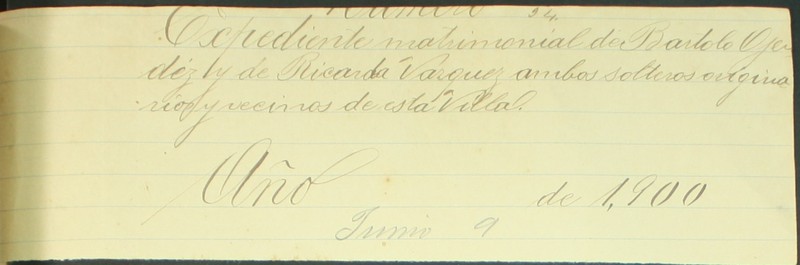 Numero 34.
Expediente matrimonial de Bartolo
déz y de Ricarda Vazquez ambos solteros origina
rios y vecinos de esta Villa.
Año de 1,900
Junio 9